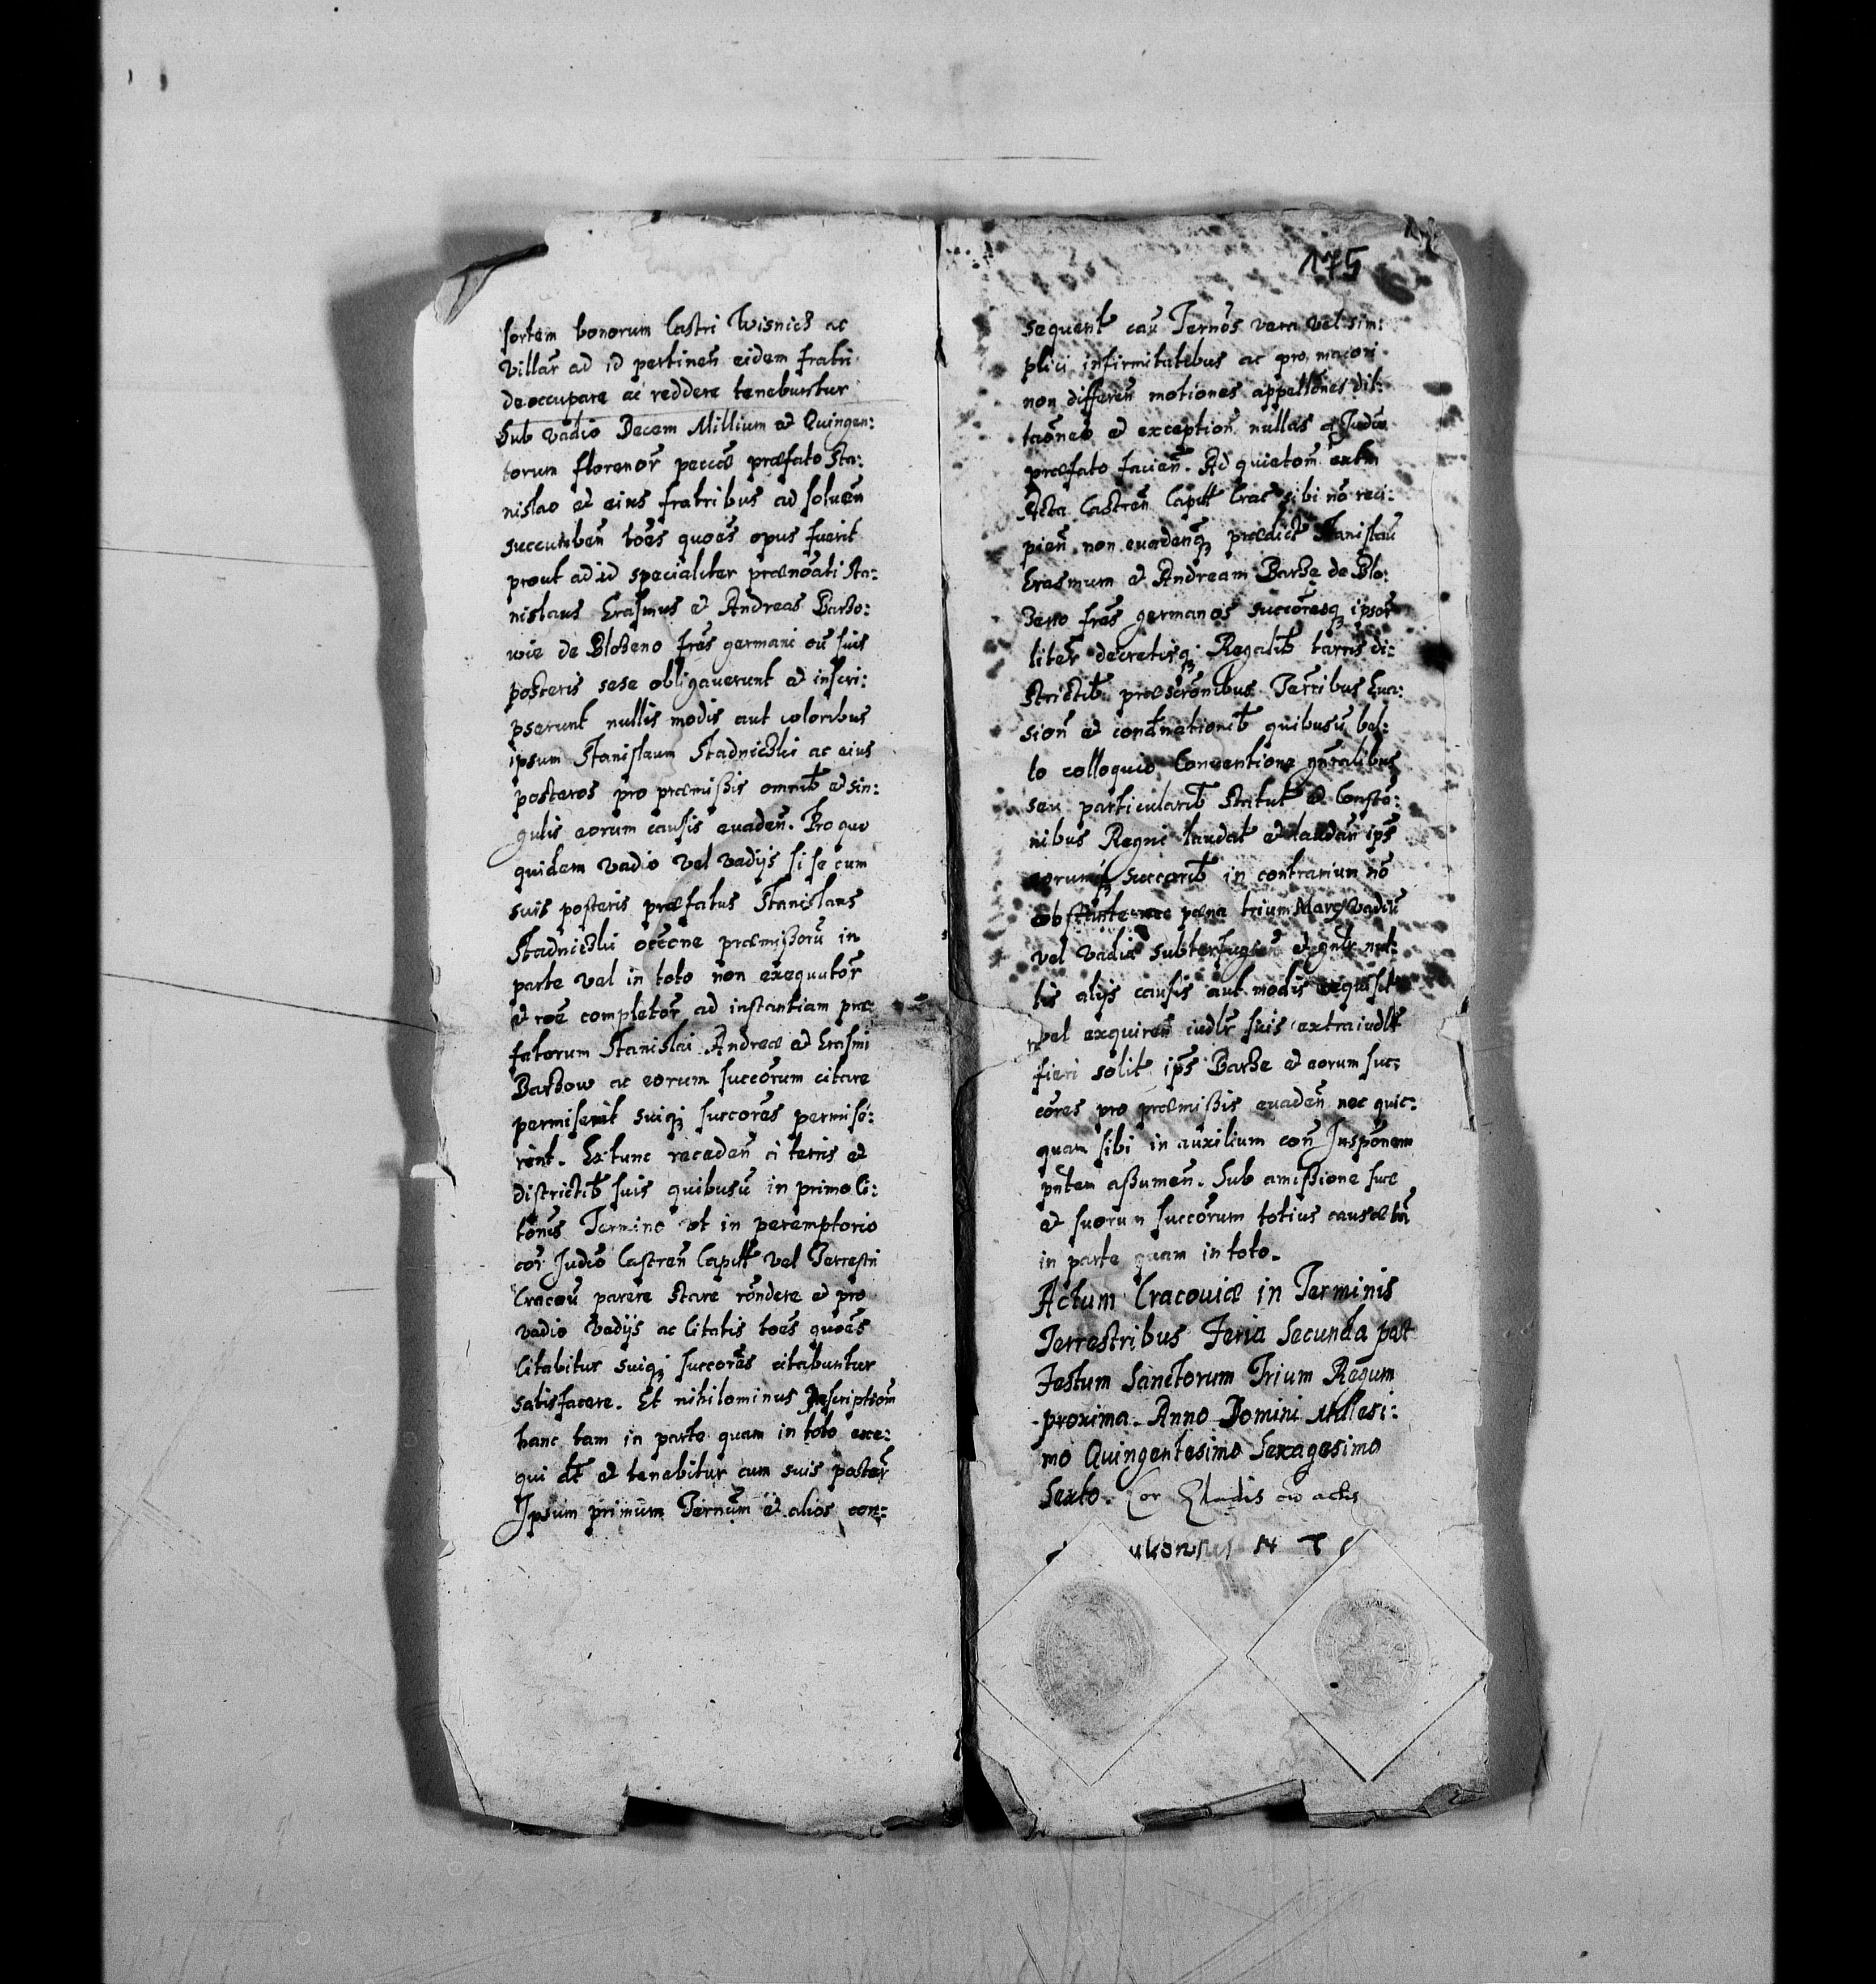 sortem bonorum Castri Wisnicz ac
villar̃ ad id pertineñ eidem fratri
deoccupare ac reddere teneburtur
Sub vadio Decem Millium et Quingen:
torum florenor̃ pecc̃æ præfato Sta:
nislao et eius fratribus ad solueñ
succumbeñ toẽs quoẽs opus fuerit
prout ad id specialiter prænoãti Sta:
nislaus Erasmus et Andreas Barzo:
wie de Blozeno frẽs germani cũ suis
posteris sese obligauerunt et inscri:
pserunt nullis modis aut coloribus
ipsum Stanislaum Stadniczki ac eius
posteros pro præmißis omnib et sin:
gulis eorum causis euadeñ. Pro quo
quidem vadio vel vadijs si se cum
suis posteris præfatus Stanislaus
Stadniczki occ̃one præmißorũ in
parte vel in toto non exequutor̃
et roẽ completor̃ ad instantiam præ:
fatorum Stanislai Andreæ et Erasmi
Barzow ac eorum succõrum citare
permiserit suiq; succores permise:
rint. Extunc recedeñ ci terris et
districtib suis quibusũ in primo Ci:
tonis Termino ut in peremptorio
cor̃ Judio Castreñ Capitt vel Terrestri
Cracoũ parere stare rõndere et pro
vadio vadijs ac Citatis toẽs quoẽs
Citabitur suiq; succores citabuntur
satisfacere. Et nihilominus Inscriptiom
hanc tam in parte quam in toto exe:
qui dt̃ et tenebitur cum suis poster̃
Ipsum primum Ternũm et alios con:
175
sequent cau Ternõs vera vel sim:
plici infirmitatibus ac pro maiori
non differeñ motiones appellõnes dil:
taõnes et exceptioñ nullas Judio
præfato facieñ. Ad quietoñ
Acta Castreñ Capitt Crac sibi nõ reci:
pieñ non euadenq; prædict Stanislaũ
Erasmum et Andream Barze de Blo:
zeno frẽs germanos succõresq; ipsor̃
liter̃ decretisq; Regalib tarris di:
strictib præscrõnibus Terribus Eua:
sioñ et condñationib quibusũ bel:
lo colloquio Conventione gñralibus
seu particularib Statut et Consto:
nibus Regni laudat et laudañ ips̃
eorumq; succorib in contrarium nõ
obstante nec pæna trium Marc vadiũ
vel vadia subterfugieñ et gnlr nul:
lis alijs causis aut modis exquisit
vel exquireñ iudlr̃ suis extraiudlr̃
fieri solit ips̃ Barze et eorum suc:
cõres pro præmißis euadeñ nec quic:
quam sibi in auxilium coñ Insponem
pñtem aßumeñ. Sub amißione suæ
et suorum succõrum totius causæ tm̃
in parte quam in toto.
Actum Cracouiæ in Terminis
Terrestribus Feria Secunda post
Festum Sanctorum Trium Regum
proxima. Anno Domini Millesi:
mo Quingentesimo Sexagesimo
Sexto. Cor cũ actis